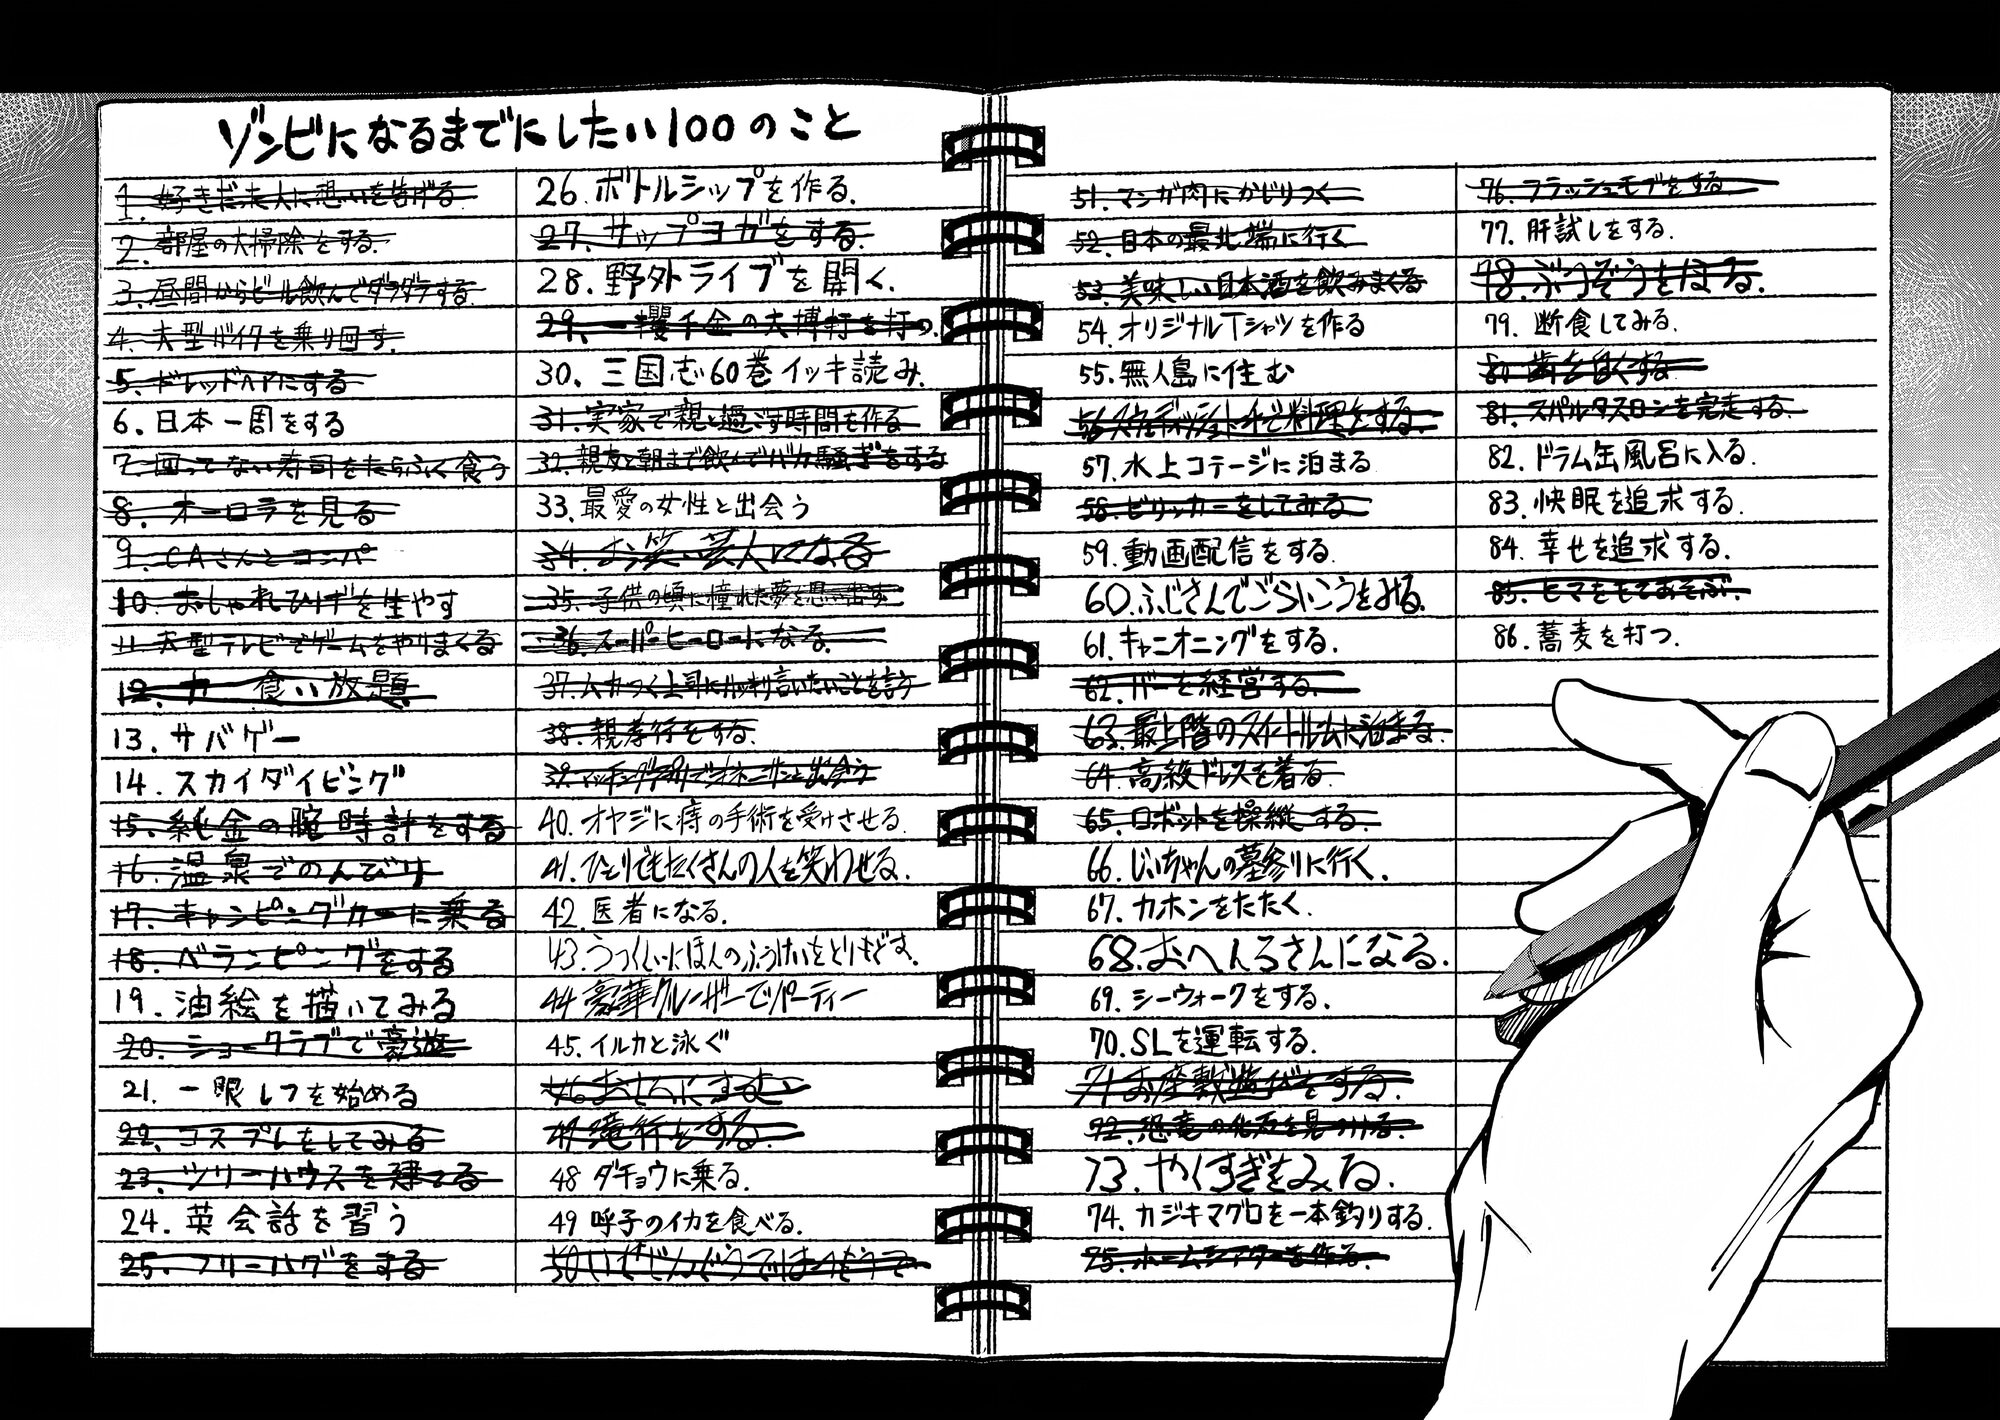 ゾンビになるまでにしたい100のこと
1. 好きだった人に想いを告げる
2. 部屋の大掃除をする.
3. 昼間からビール飲んでダラダラする
4. 大型バイクを乗り回す.
5. ドレッドヘアにする
6. 日本一周をする
7. 回ってない寿司をたらふく食う
8. オーロラを見る
9. CAさんとコンパ
10. おしゃれひげを生やす
11. 大型テレビでゲームをやりまくる
12. カ 食い放題
13. サバゲー
14. スカイダイビング
15. 純金の腕時計をする
16. 温泉でのんびり
17. キャンピングカーに乗る
18. ベランピングをする
19. 油絵を描いてみる
20. ショークラブで豪遊
21. 一眼レフを始める
22. コスプレをしてみる
23. ツリーハウスを建てる
24. 英会話を習う
25. フリーハグをする
26. ボトルシップを作る.
27. サップヨガをする.
28. 野外ライブを開く.
29. 一攫千金の大博打を打つ.
30. 三国志60巻イッキ読み.
31. 実家で親と過ごす時間を作る
32. 親友と朝まで飲んでバカ騒ぎをする
33. 最愛の女性と出会う
34. お笑い芸人になる
35. 子供の頃に憧れた夢を思い出す
36. スーパーヒーローになる.
37. ムカつく上司にハッキリ言いたいことを言う
38. 親孝行をする.
39. マッチングアプリでオネーサンと出会う
40. オヤジに痔の手術を受けさせる.
41. ひとりでもたくさんの人を笑わせる.
42. 医者になる.
43. うつくしいにほんのふうけいをとりもどす.
44 豪華クルーザーでパーティー
45. イルカと泳ぐ
46 おしろにすむ
47 滝行をする.
48 ダチョウに乗る.
49 呼子のイカを食べる.
50 いせじんぐうではつもうで
51. マンガ肉にかじりつく
52. 日本の最北端に行く
53. 美味しい日本酒を飲みまくる
54. オリジナルTシャツを作る
55. 無人島に住む
56 スウェディッシュトーチで料理をする.
57. 水上コテージに泊まる
58. ビリッカーをしてみる
59. 動画配信をする.
60. ふじさんでごらいこうをみる.
61. キャニオニングをする.
62. バーを経営する.
63. 最上階のスイートルームに泊まる.
64. 高級ドレスを着る
65. ロボットを操縦する.
66. じいちゃんの墓参りに行く.
67. カホンをたたく.
68. おへんろさんになる.
69. シーウォークをする.
70. SLを運転する.
71 お座敷遊びをする.
72. 恐竜の化石を見つける.
73. やくすぎをみる.
74. カジキマグロを一本釣りする.
75. ホームシアターを作る.
76. フラッシュモブをする
77. 肝試しをする.
78. ぶつぞうをほる.
79. 断食してみる.
80 歯を白くする
81. スパルタスロンを完走する.
82. ドラム缶風呂に入る.
83. 快眠を追求する.
84. 幸せを追求する.
85. ヒマをもてあそぶ.
86. 蕎麦を打つ.